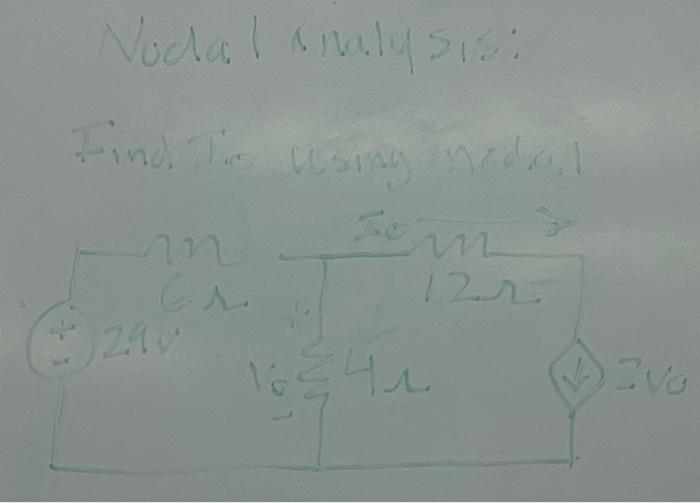 Nodal analysis:
Find Io using nodal
Io
6Ω
12Ω
+
+
-
29v
Vo
4Ω
2vo
-